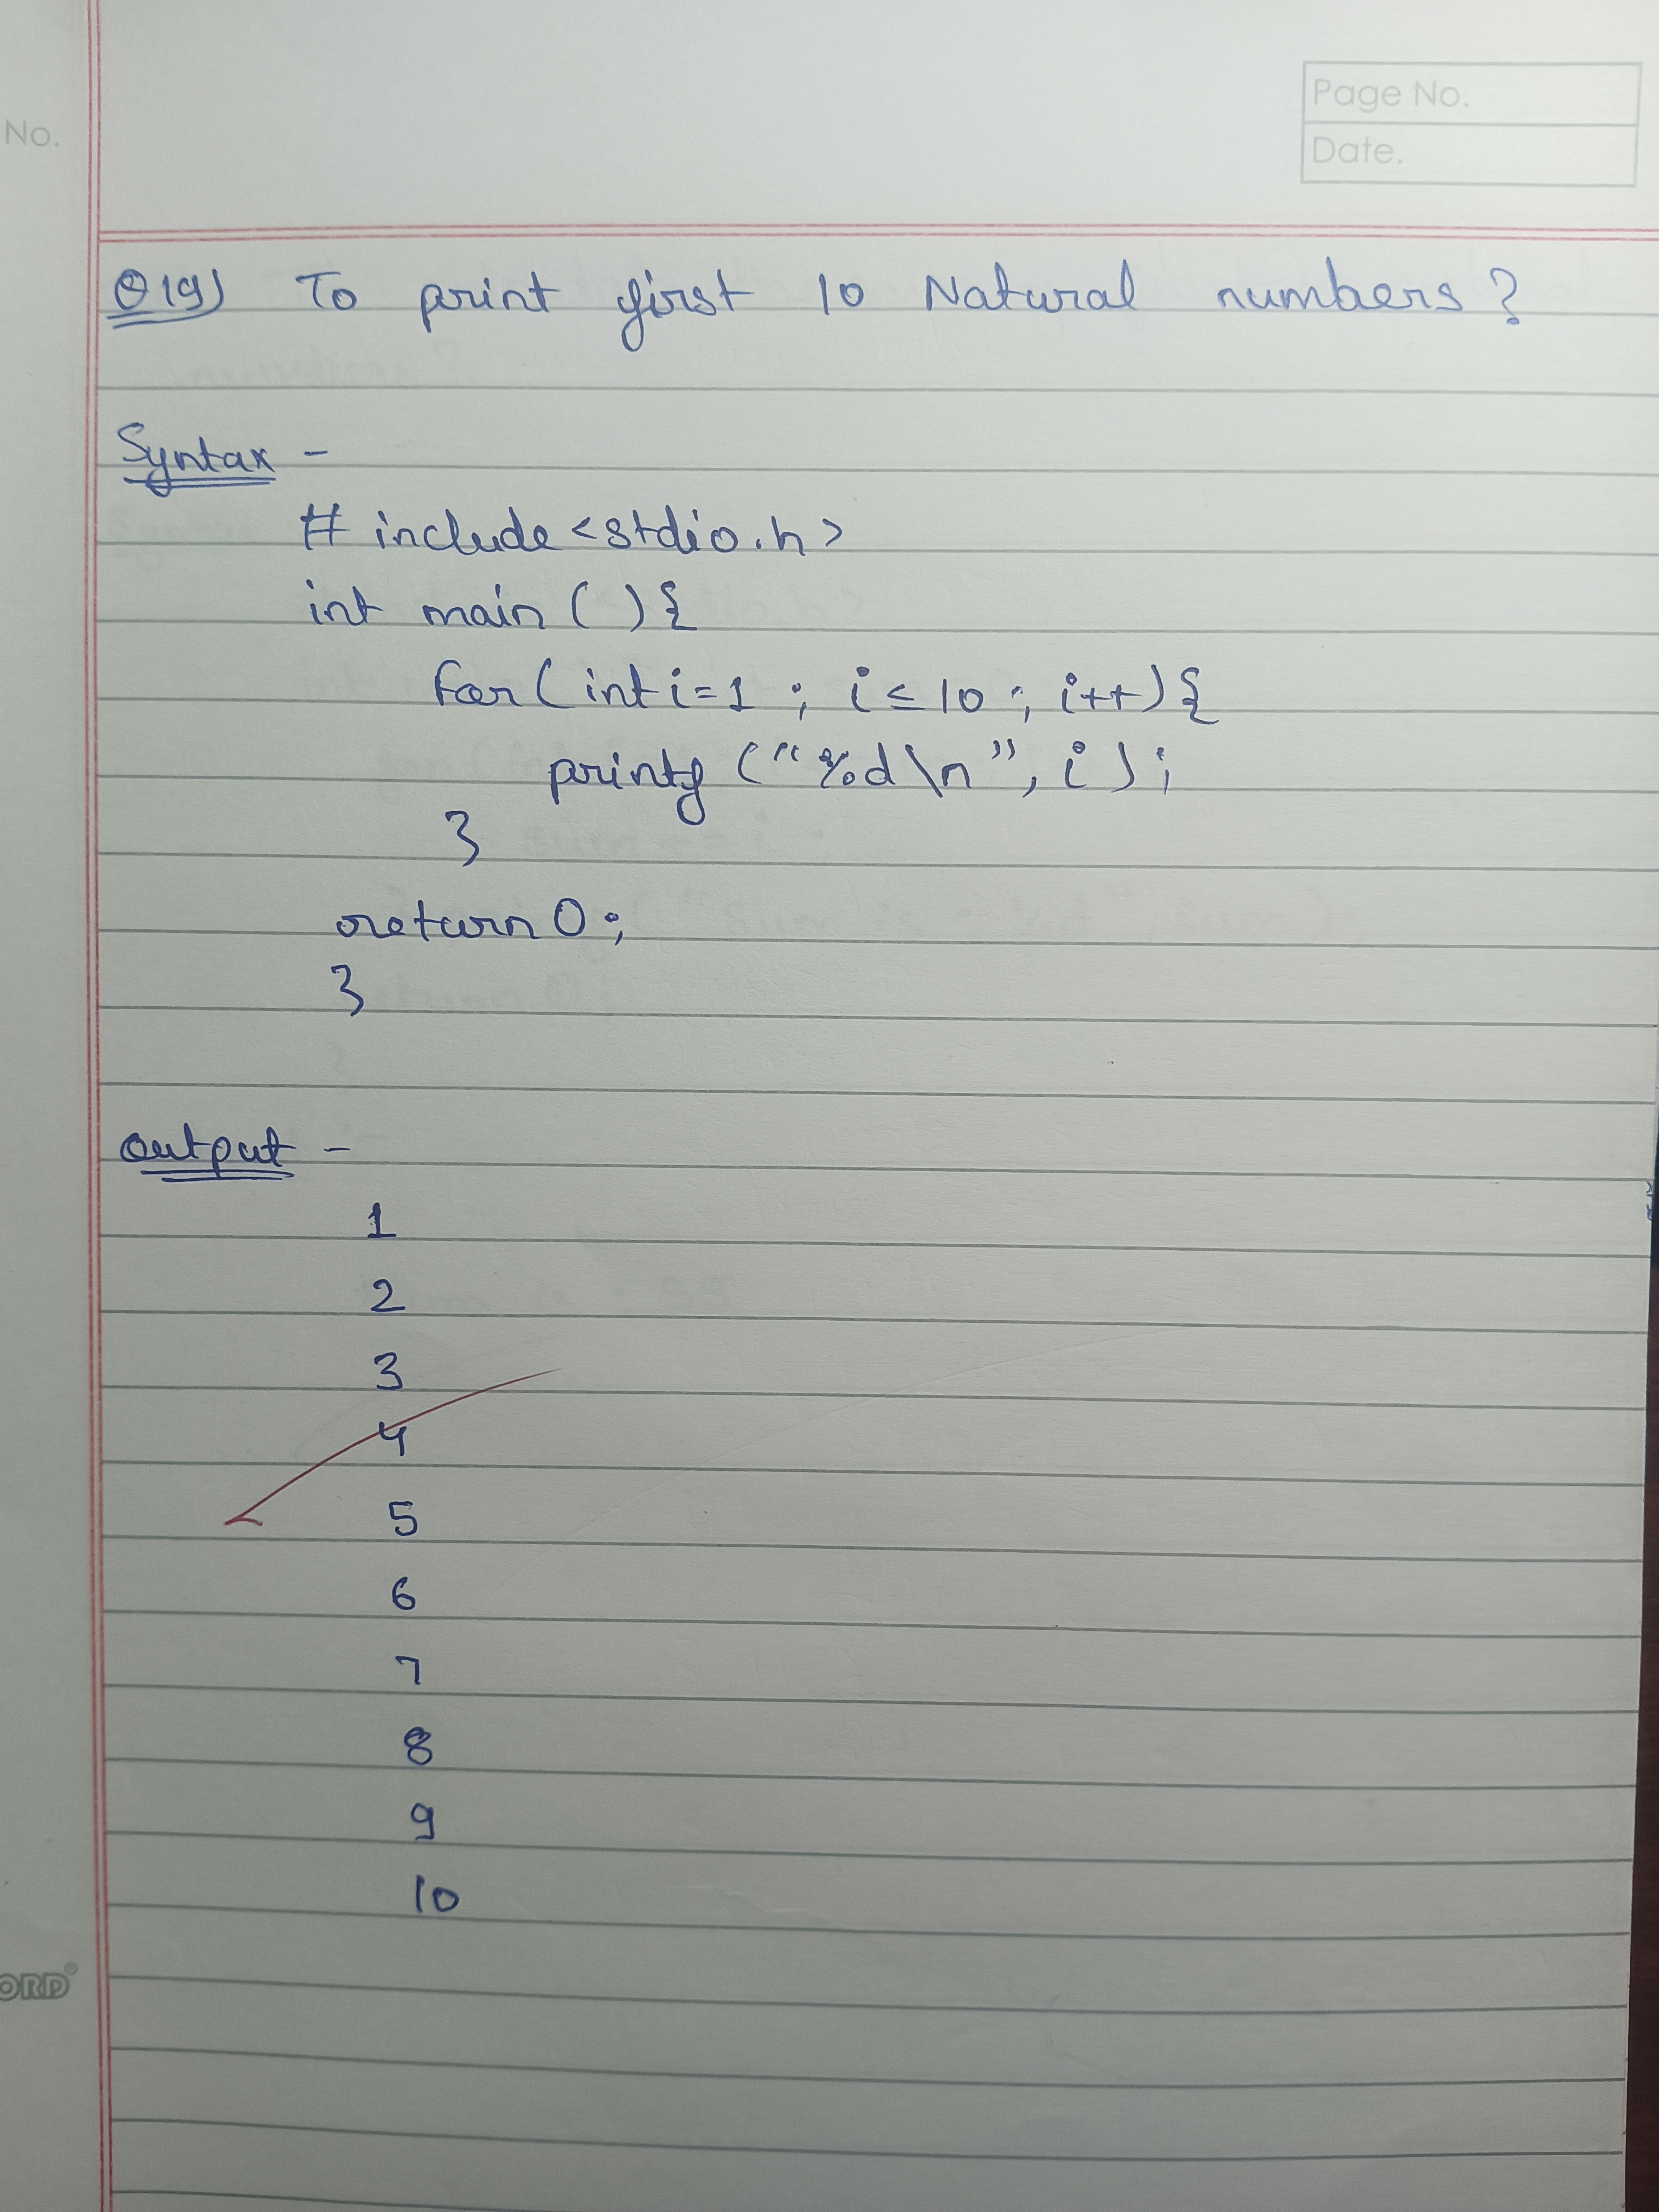 No.
Page No.
Date.
Q19) To print first 10 Natural numbers?
Syntax -
# include <stdio.h>
int main ( ) {
for ( int i = 1 ; i ≤ 10 ; i++ ) {
printf ( “ %d \n ” , i ) ;
}
return 0 ;
}
output -
1
2
3
4
5
6
7
8
9
10
ORD®